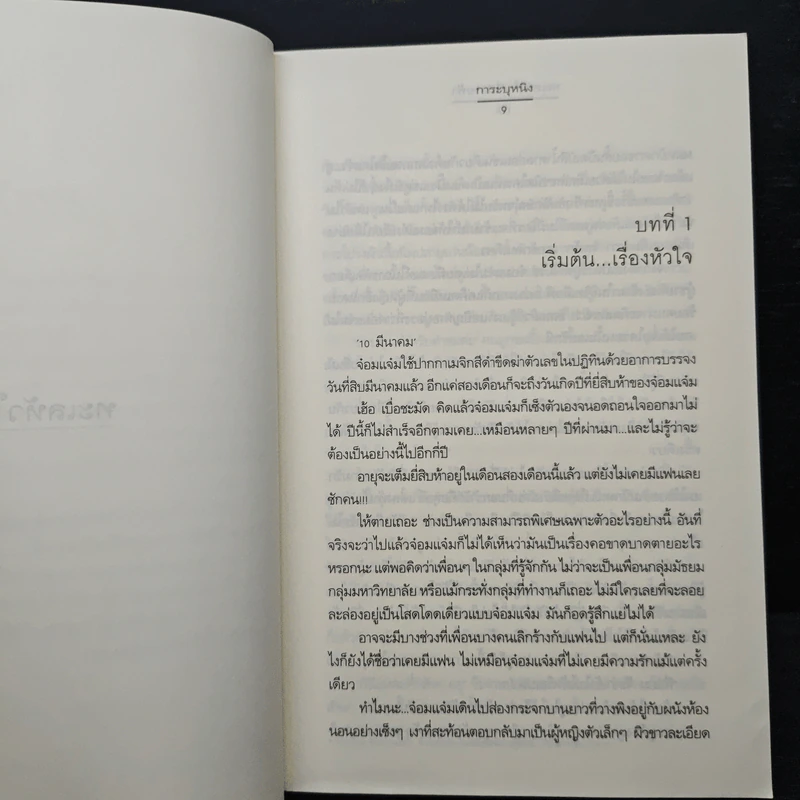 การะบุหนิง
9
บทที่ 1
เริ่มต้น...เรื่องหัวใจ
'10 มีนาคม'
จ๋อมแจ๋มใช้ปากกาเมจิกสีดำขีดฆ่าตัวเลขในปฏิทินด้วยอาการบรรจง
วันที่สิบมีนาคมแล้ว อีกแค่สองเดือนก็จะถึงวันเกิดปีที่ยี่สิบห้าของจ๋อมแจ๋ม
เฮ้อ เบื่อชะมัด คิดแล้วจ๋อมแจ๋มก็เซ็งตัวเองจนอดถอนใจออกมาไม่
ได้ ปีนี้ก็ไม่สำเร็จอีกตามเคย...เหมือนหลายๆ ปีที่ผ่านมา...และไม่รู้ว่าจะ
ต้องเป็นอย่างนี้ไปอีกกี่ปี
อายุจะเต็มยี่สิบห้าอยู่ในเดือนสองเดือนนี้แล้ว แต่ยังไม่เคยมีแฟนเลย
ซักคน!!!
ให้ตายเถอะ ช่างเป็นความสามารถพิเศษเฉพาะตัวอะไรอย่างนี้ อันที่
จริงจะว่าไปแล้วจ๋อมแจ๋มก็ไม่ได้เห็นว่ามันเป็นเรื่องคอขาดบาดตายอะไร
หรอกนะ แต่พอคิดว่าเพื่อนๆ ในกลุ่มที่รู้จักกัน ไม่ว่าจะเป็นเพื่อนกลุ่มมัธยม
กลุ่มมหาวิทยาลัย หรือแม้กระทั่งกลุ่มที่ทำงานก็เถอะ ไม่มีใครเลยที่จะลอย
ละล่องอยู่เป็นโสดโดดเดี่ยวแบบจ๋อมแจ๋ม มันก็อดรู้สึกแย่ไม่ได้
อาจจะมีบางช่วงที่เพื่อนบางคนเลิกร้างกับแฟนไป แต่ก็นั่นแหละ ยัง
ไงก็ยังได้ชื่อว่าเคยมีแฟน ไม่เหมือนจ๋อมแจ๋มที่ไม่เคยมีความรักแม้แต่ครั้ง
เดียว
ทำไมนะ...จ๋อมแจ๋มเดินไปส่องกระจกบานยาวที่วางพิงอยู่กับผนังห้อง
นอนอย่างเซ็งๆ เงาที่สะท้อนตอบกลับมาเป็นผู้หญิงตัวเล็กๆ ผิวขาวละเอียด